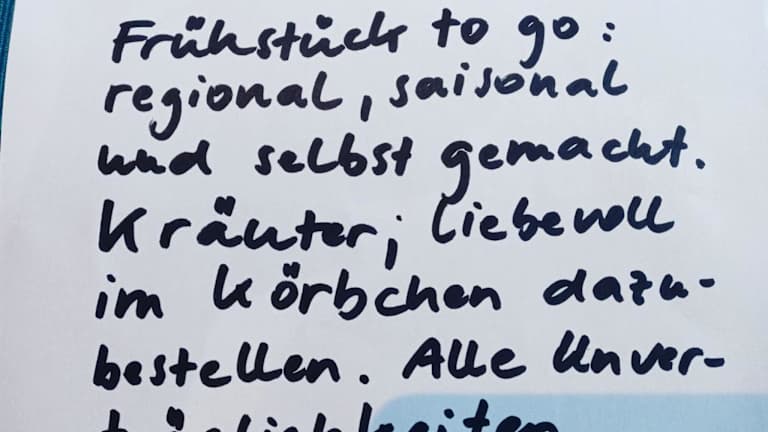 Frühstück to go:
regional, saisonal
und selbst gemacht.
Kräuter; liebevoll
im Körbchen dazu-
bestellen. Alle Unver-
träglichkeiten